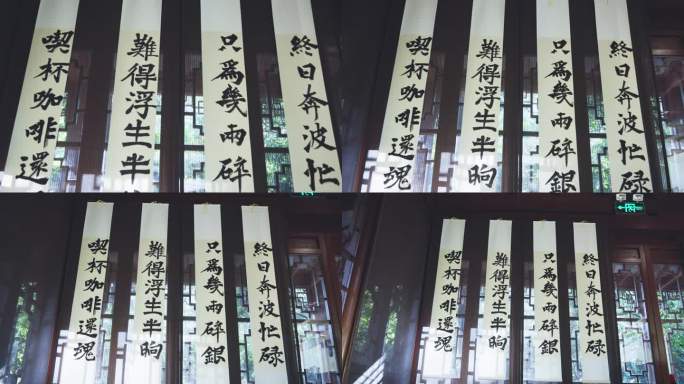 終日奔波忙碌
只爲幾兩碎
難得浮生半
喫杯咖啡還
終日奔波忙碌
只爲幾兩碎銀
難得浮生半晌
喫杯咖啡還魂
終日奔波忙碌
只爲幾兩碎銀
難得浮生半晌
喫杯咖啡還魂
終日奔波忙碌
只爲幾兩碎銀
難得浮生半晌
喫杯咖啡還魂